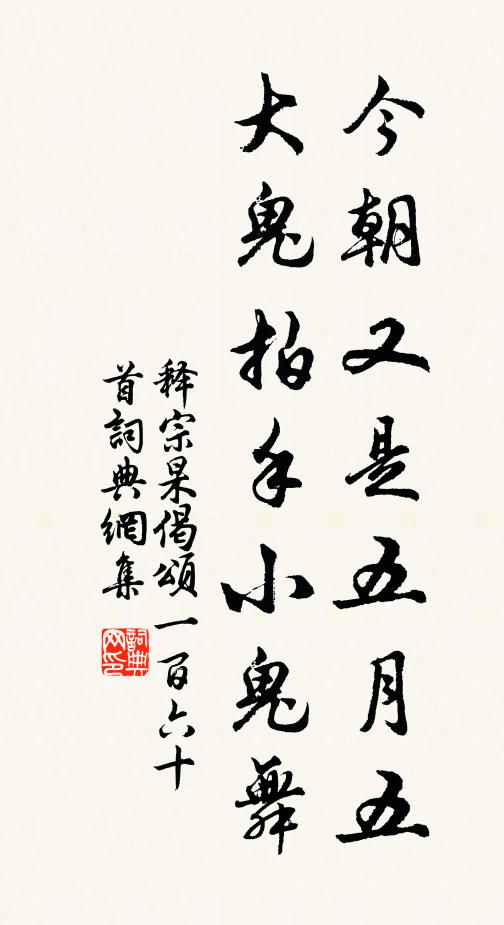 今朝又是五月五
大鬼拍手小鬼舞
释宗杲偈頌一百六十
首詞典網集
詞典网印